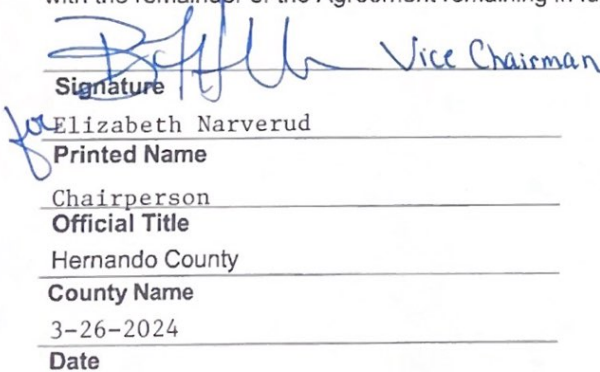 Vice Chairman
Signature
for Elizabeth Narverud
Printed Name
Chairperson
Official Title
Hernando County
County Name
3-26-2024
Date